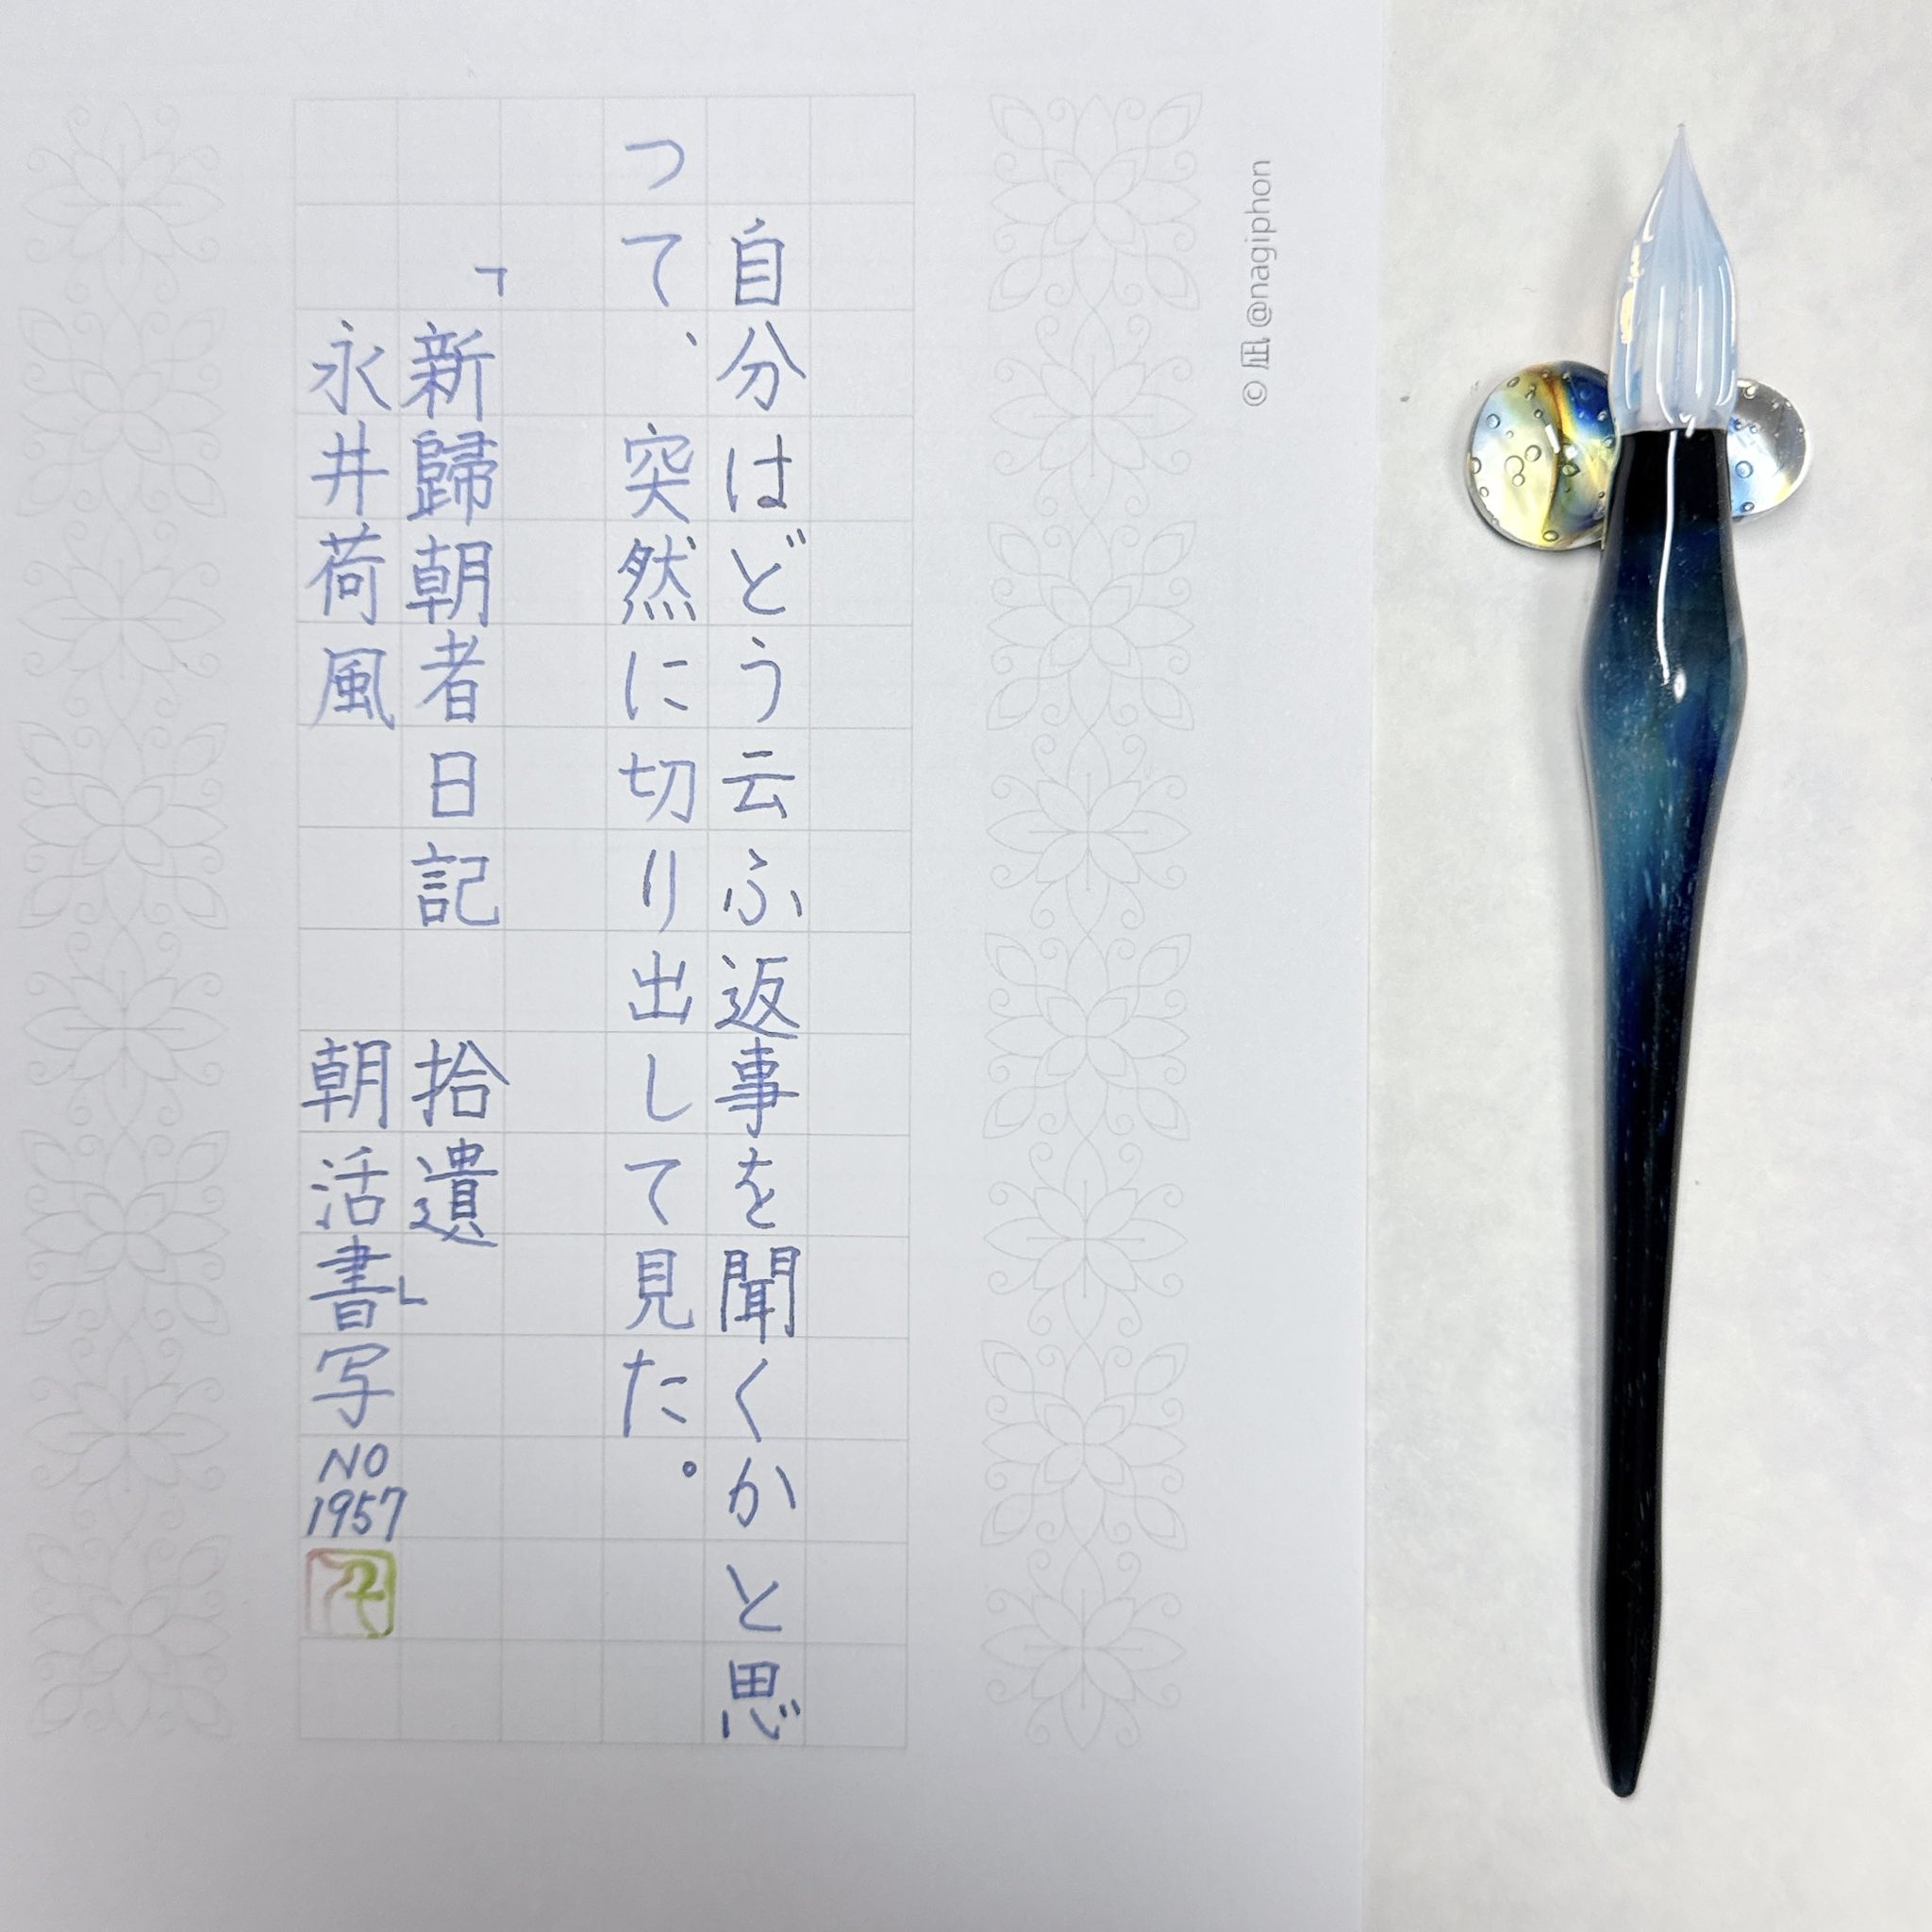 自分はどう云ふ返事を聞くかと思
つて、突然に切り出して見た。
「新歸朝者日記　拾遺」
永井荷風　朝活書写NO1957
© 凪 @nagiphon